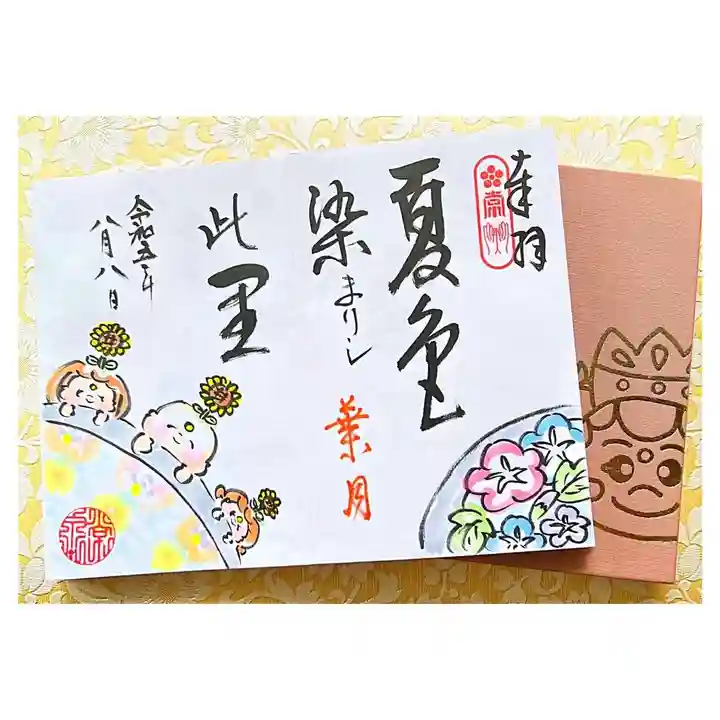 奉拝
夏色
染まりし
葉月
此里
令和五年
八月八日